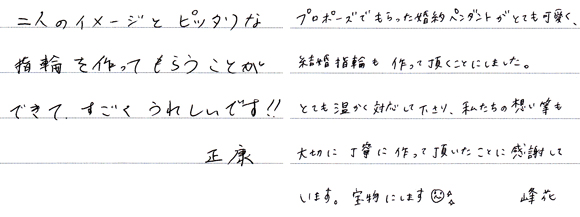 二人のイメージとピッタリな
指輪を作ってもらうことが
できて、すごくうれしいです!!
正康
プロポーズでもらった婚約ペンダントがとても可愛く、
結婚指輪も作って頂くことにしました。
とても温かく対応して下さり、私たちの想い等も
大切に丁寧に作って頂いたことに感謝して
います。宝物にします
峰花